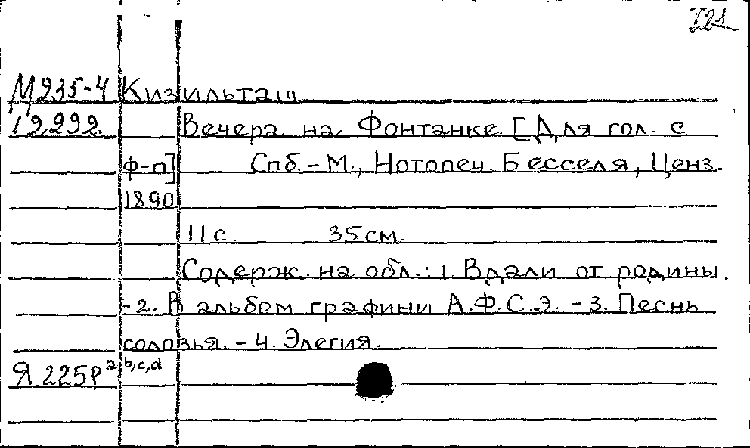 М235-4 Кизильташ
12292 Вечера на Фонтанке [Для гол. с
ф-п] Спб.-М., Нотопеч. Бесселя, Ценз.
1890
11с. 35см.
Содерж. на обл.: 1. Вдали от родины.
-2. В альбом графини А.Ф.С.Э. -3. Песнь
соловья. -4. Элегия.
Я 225р² b,c,d